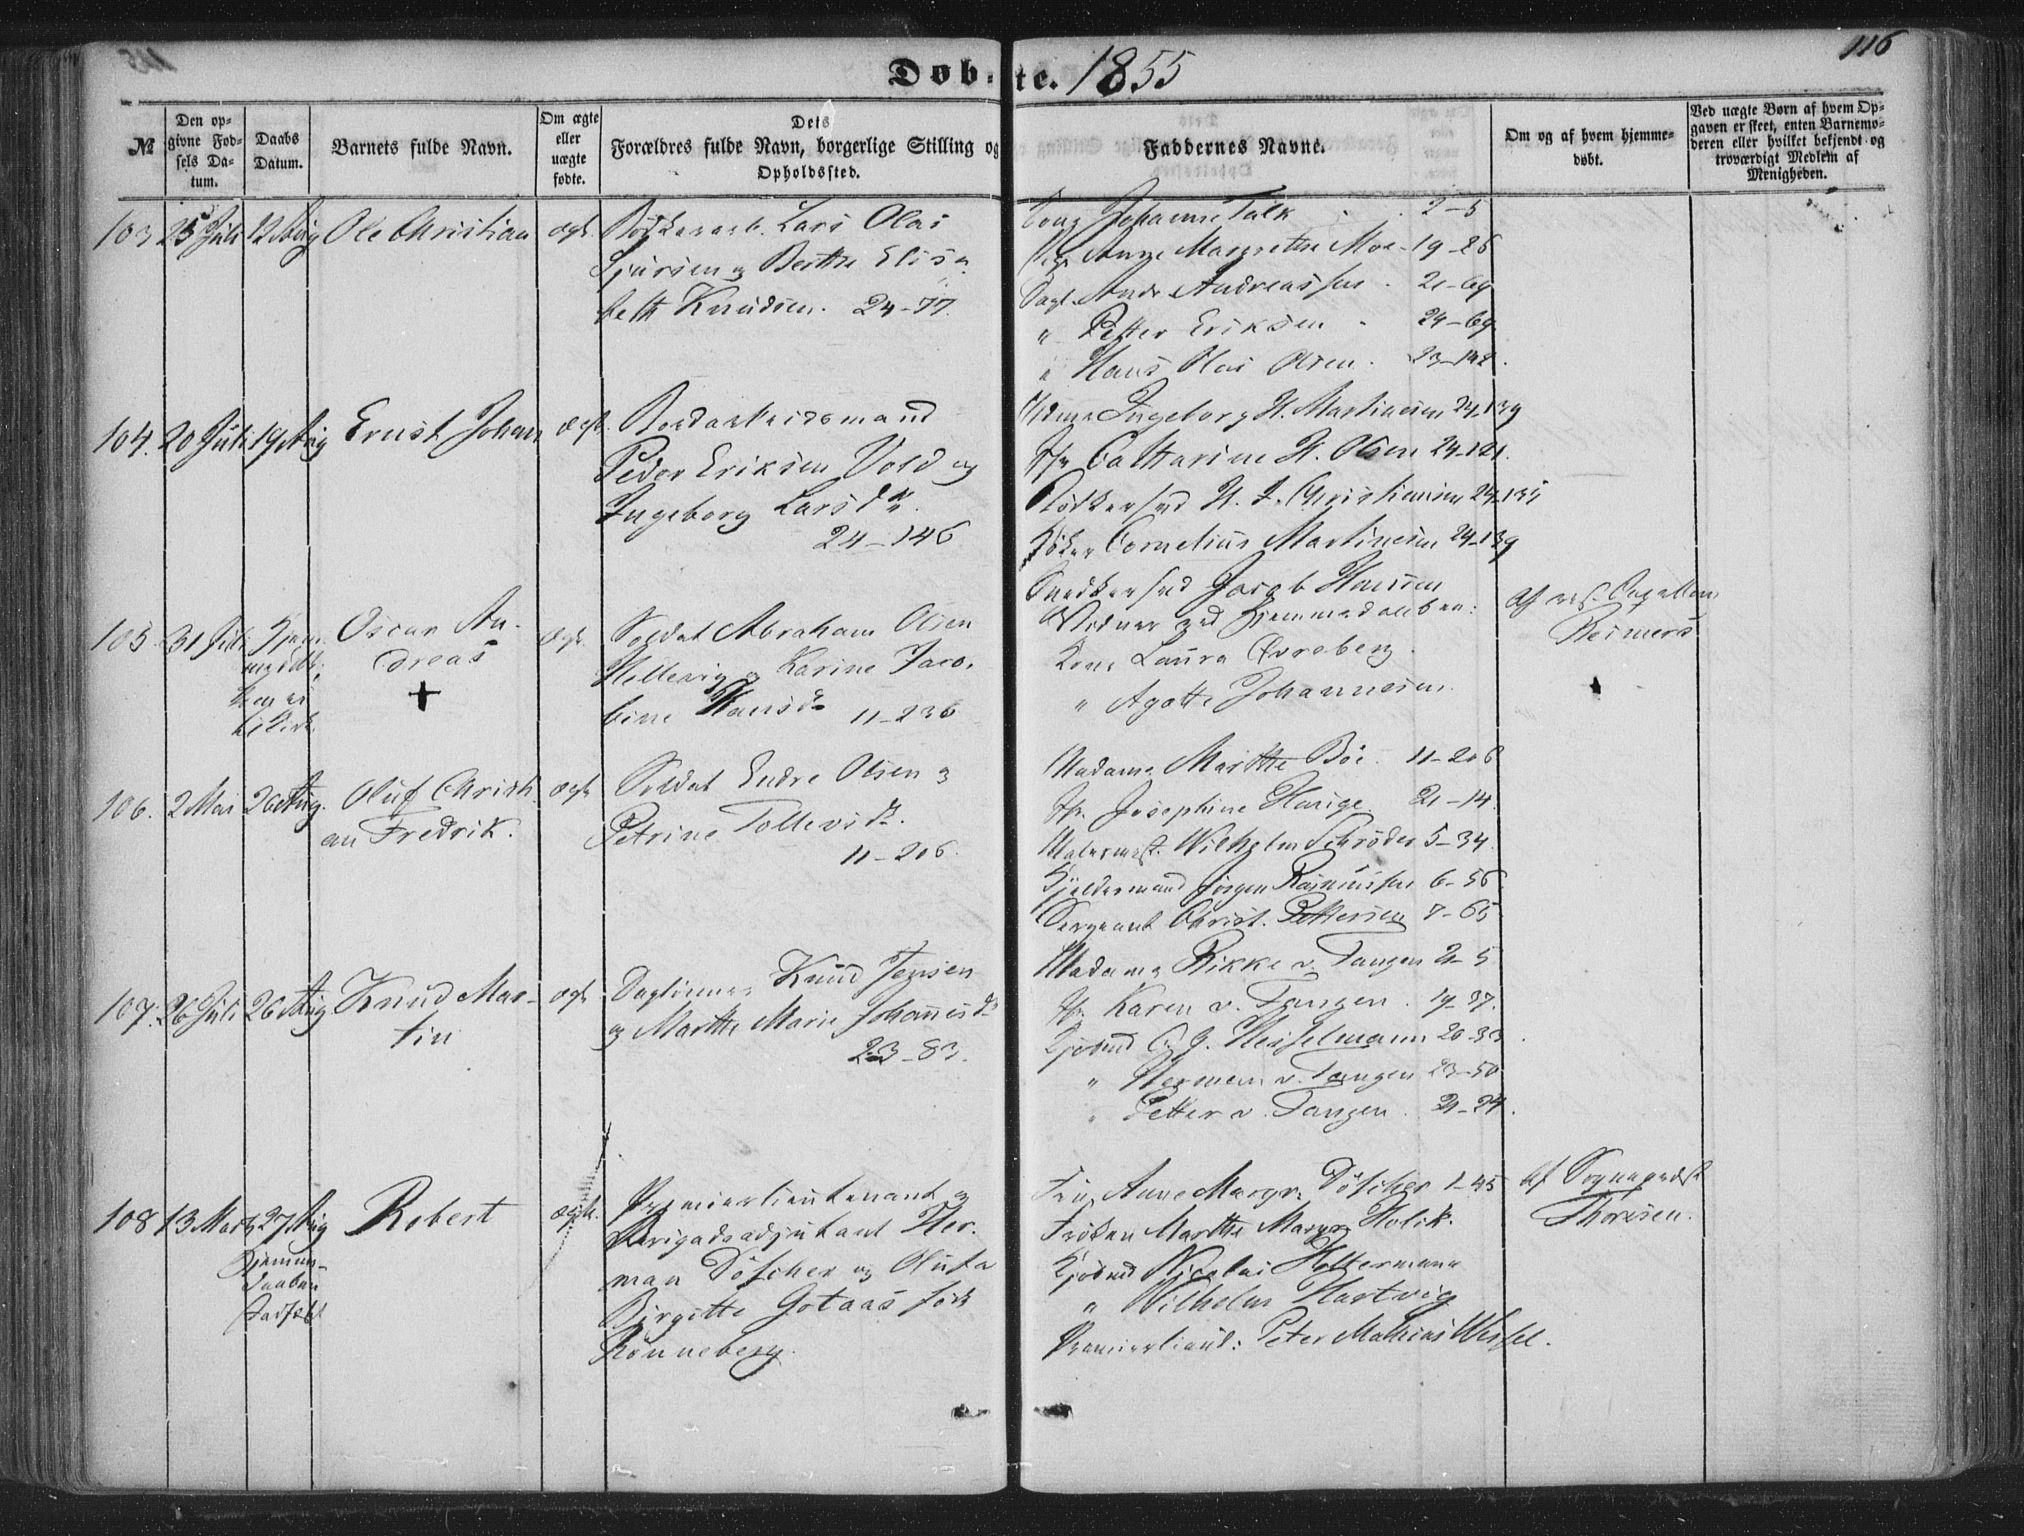 116
Døbte. 1855
№
Den op-
givne Fød-
sels Da-
tum.
Daabs
Datum.
Barnets fulde Navn.
Om ægte
eller
uægte
fødte.
Dets
Forældres fulde Navn, borgerlige Stilling og
Opholdssted.
Faddernes Navne.
Om og af hvem hjemme-
døbt.
Ved uægte Børn af hvem Op-
gaven er skeet, enten Barnemo-
deren eller hvilket bekjendt og
troværdigt Medlem af
Menigheden.
103 25 Juli 12 Aug Ole Christian ægt. Lars Olai
Sjursen og Berthe Elisa
beth Knudsen. 24-77.
Kone Johanne Falk 2-5
Pige Anne Margrethe Moe 19-26
Dagl. Andr. Andreassen 21-69
" Petter Eriksen 24-69
" Hans Olai Olsen 23-142
104. 20 Juli 19 Aug Ernst Johan ægt. Bordarbeidsmand
Peder Eriksen Vold og
Ingeborg Larsdtr.
24-146
Madame Ingeborg H. Martinesen 24-139
Jfr Catharine H. Olsen 24-121.
Bødkersvd H. J. Christiansen 24-135
Cornelius Martinesen 24-139
Snedkersvd Jacob Hansen
105. 31 Juli Hjem-
medøbt,
Oscar An-
dreas
+
ægt. Soldat Abraham Olsen
Hellevig og Karine Jaco-
bine Hansd. 11-236
Vidner ved Hjemmedaaben:
Kone Laura Øvreberg.
" Agathe Johannesen.
af res. Capellan
Reimers
106. 2 Mai 26 Aug. Oluf Christi-
an Fredrik.
ægt. Soldat Endre Olsen og
Petrine Tollevsdtr.
11-206.
Madame Marthe Böe. 11-206
Jfr. Josephine Harige. 21-14.
Malermest. Wilhelm Schrøder 5-34.
Kjeldermand Jörgen Rasmussen 6-56
Sergeant Christ. Pettersen 7-65
107. 26 Juli 26 Aug Knud Mar-
tin
ægt. Daglönner Knud Jensen
og Marthe Marie Johannesdr
23-83.
Madame Rikke v. Tangen 21-5
Jfr. Karen v. Tangen. 19-37.
Kjøbmd C. J. Hesselmann 20-33.
" Herman v. Tangen 23-50
" Petter v. Tangen. 21-24.
108 13 Marts 27 Aug
Hjemme-
daaben
stadfæst
Robert
ægt. Premierlieutenant og
Brigadeadjutant Her-
man Döscher og Olufa
Birgitte Gotaas født
Rönneberg.
Fru Anne Margr. Döscher 1-45
Fröken Marthe Margr. Holck.
Kjöbmd Nicolai Holtermann
" Wilhelm Hartvig
Premierlieut: Peter Mathias Wessel.
af Sognepræst
Thoresen.